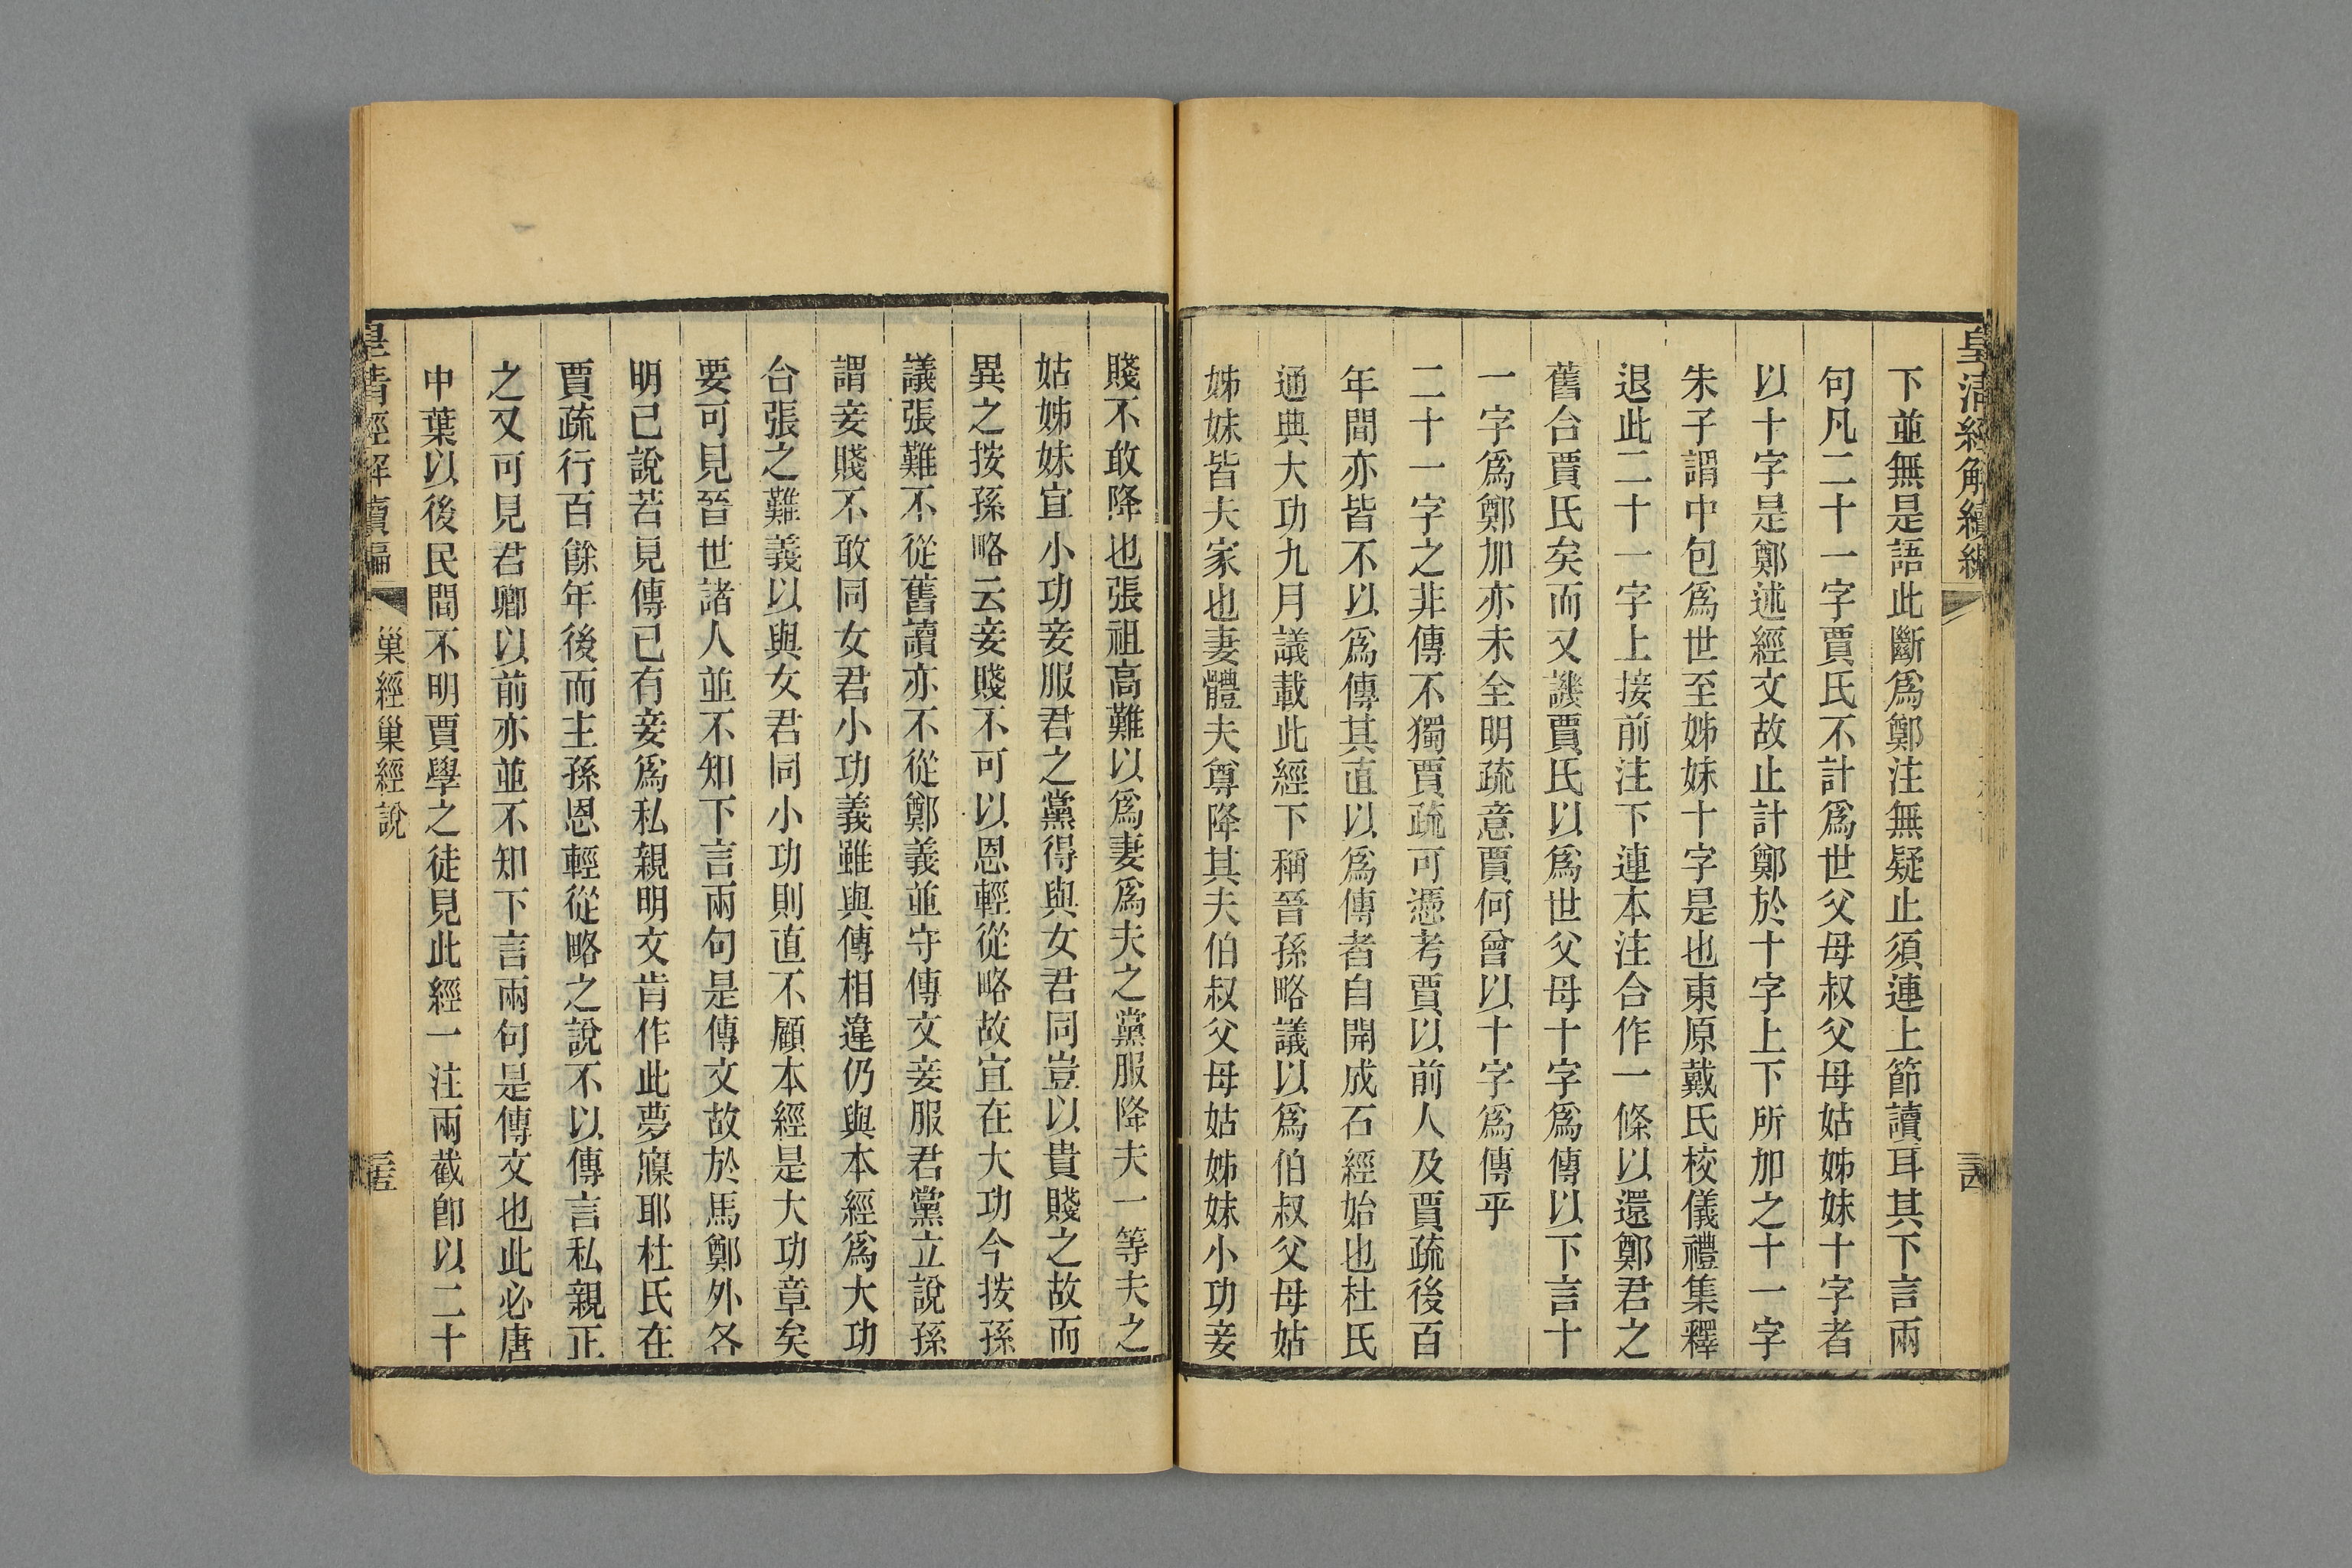 皇清經解續編
下並無是語此斷爲鄭注無疑止須連上節讀耳其下言兩
句凡二十一字賈氏不計爲世父母叔父母姑姊妹十字者
以十字是鄭述經文故止計鄭於十字上下所加之十一字
朱子謂中包爲世至姊妹十字是也東原戴氏校儀禮集釋
退此二十一字上接前注下連本注合作一條以還鄭君之
舊台賈氏矣而又譏賈氏以爲世父母十字爲傳以下言十
一字爲鄭加亦未全明疏意賈何曾以十字爲傳乎
二十一字之非傳不獨賈疏可憑考賈以前人及賈疏後百
年間亦皆不以爲傳其直以爲傳者自開成石經始也杜氏
通典大功九月議載此經下稱晉孫略議以爲伯叔父母姑
姊妹皆夫家也妻體夫尊降其夫伯叔父母姑姊妹小功妾
賤不敢降也張祖高難以爲妻爲夫之黨服降夫一等夫之
姑姊妹宜小功妾服君之黨得與女君同豈以貴賤之故而
異之按孫略云妾賤不可以恩輕從略故宜在大功今按孫
議張難不從舊讀亦不從鄭義並守傳文妾服君黨立說孫
謂妾賤不敢同女君小功義雖與傳相違仍與本經爲大功
台張之難義以與女君同小功則直不顧本經是大功章矣
要可見晉世諸人並不知下言兩句是傳文故於馬鄭外各
明己說若見傳已有妾爲私親明文肯作此夢寱耶杜氏在
賈疏行百餘年後而主孫恩輕從略之說不以傳言私親正
之又可見君卿以前亦並不知下言兩句是傳文也此必唐
中葉以後民間不明賈學之徒見此經一注兩截卽以二十
皇清經解續編
巢經巢經說